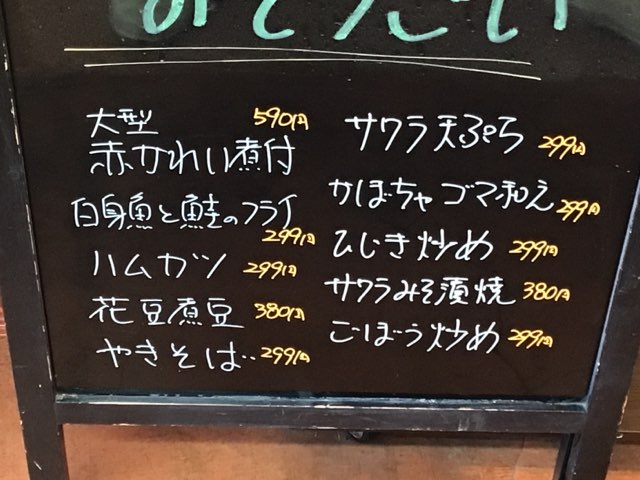 大型 590円
赤かれい煮付
白身魚と鮭のフライ
299円
ハムカツ 299円
花豆煮豆 380円
やきそば 299円
サワラ天ぷら 299円
かぼちゃゴマ和え 299円
ひじき炒め 299円
サワラみそ漬焼 380円
ごぼう炒め 299円